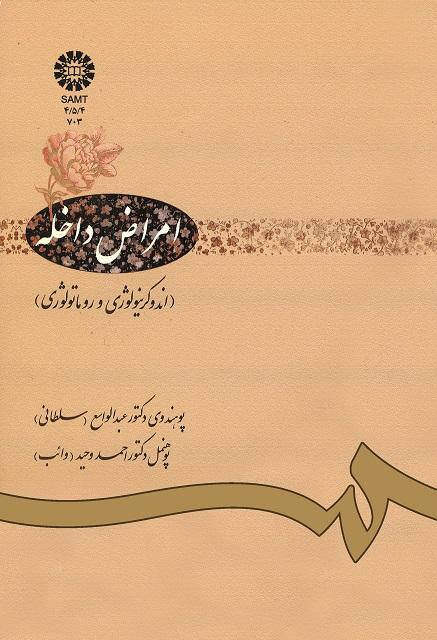 SAMT
۴/۵/۴
۷۰۳
امراض داخله
(اندوکرینولوژی و روماتولوژی)
پوهندوی دکتور عبدالواسع (سلطانی)
پوهنمل دکتور احمد وحید (وائب)